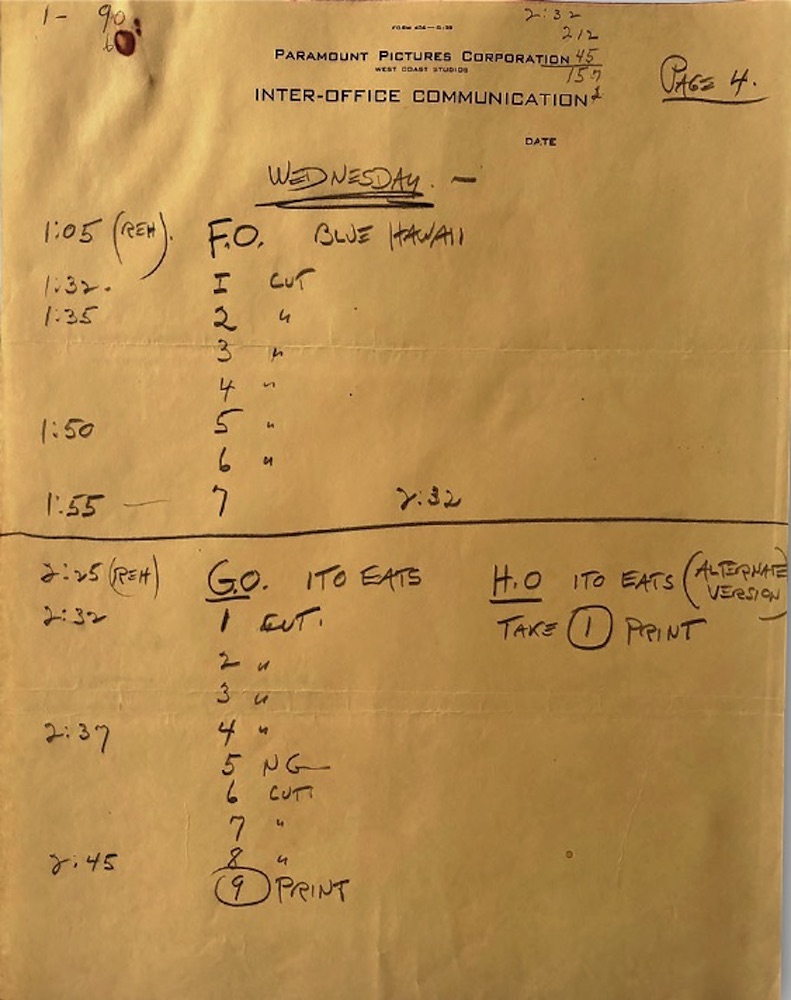 1- 90
60
2:32
212
45
157
PARAMOUNT PICTURES CORPORATION
WEST COAST STUDIOS
INTER-OFFICE COMMUNICATION
PAGE 4.
DATE
WEDNESDAY. -
1:05 (REH). F.O. BLUE HAWAII
1:32. I CUT
1:35 2 "
3 "
4 "
1:50 5 "
6 "
1:55 — 7 2:32
2:25 (REH) G.O. ITO EATS H.O ITO EATS (ALTERNATE VERSION)
2:32 1 CUT. TAKE 1 PRINT
2 "
3 "
2:37 4 "
5 NG
6 CUT
7 "
2:45 8 "
9 PRINT